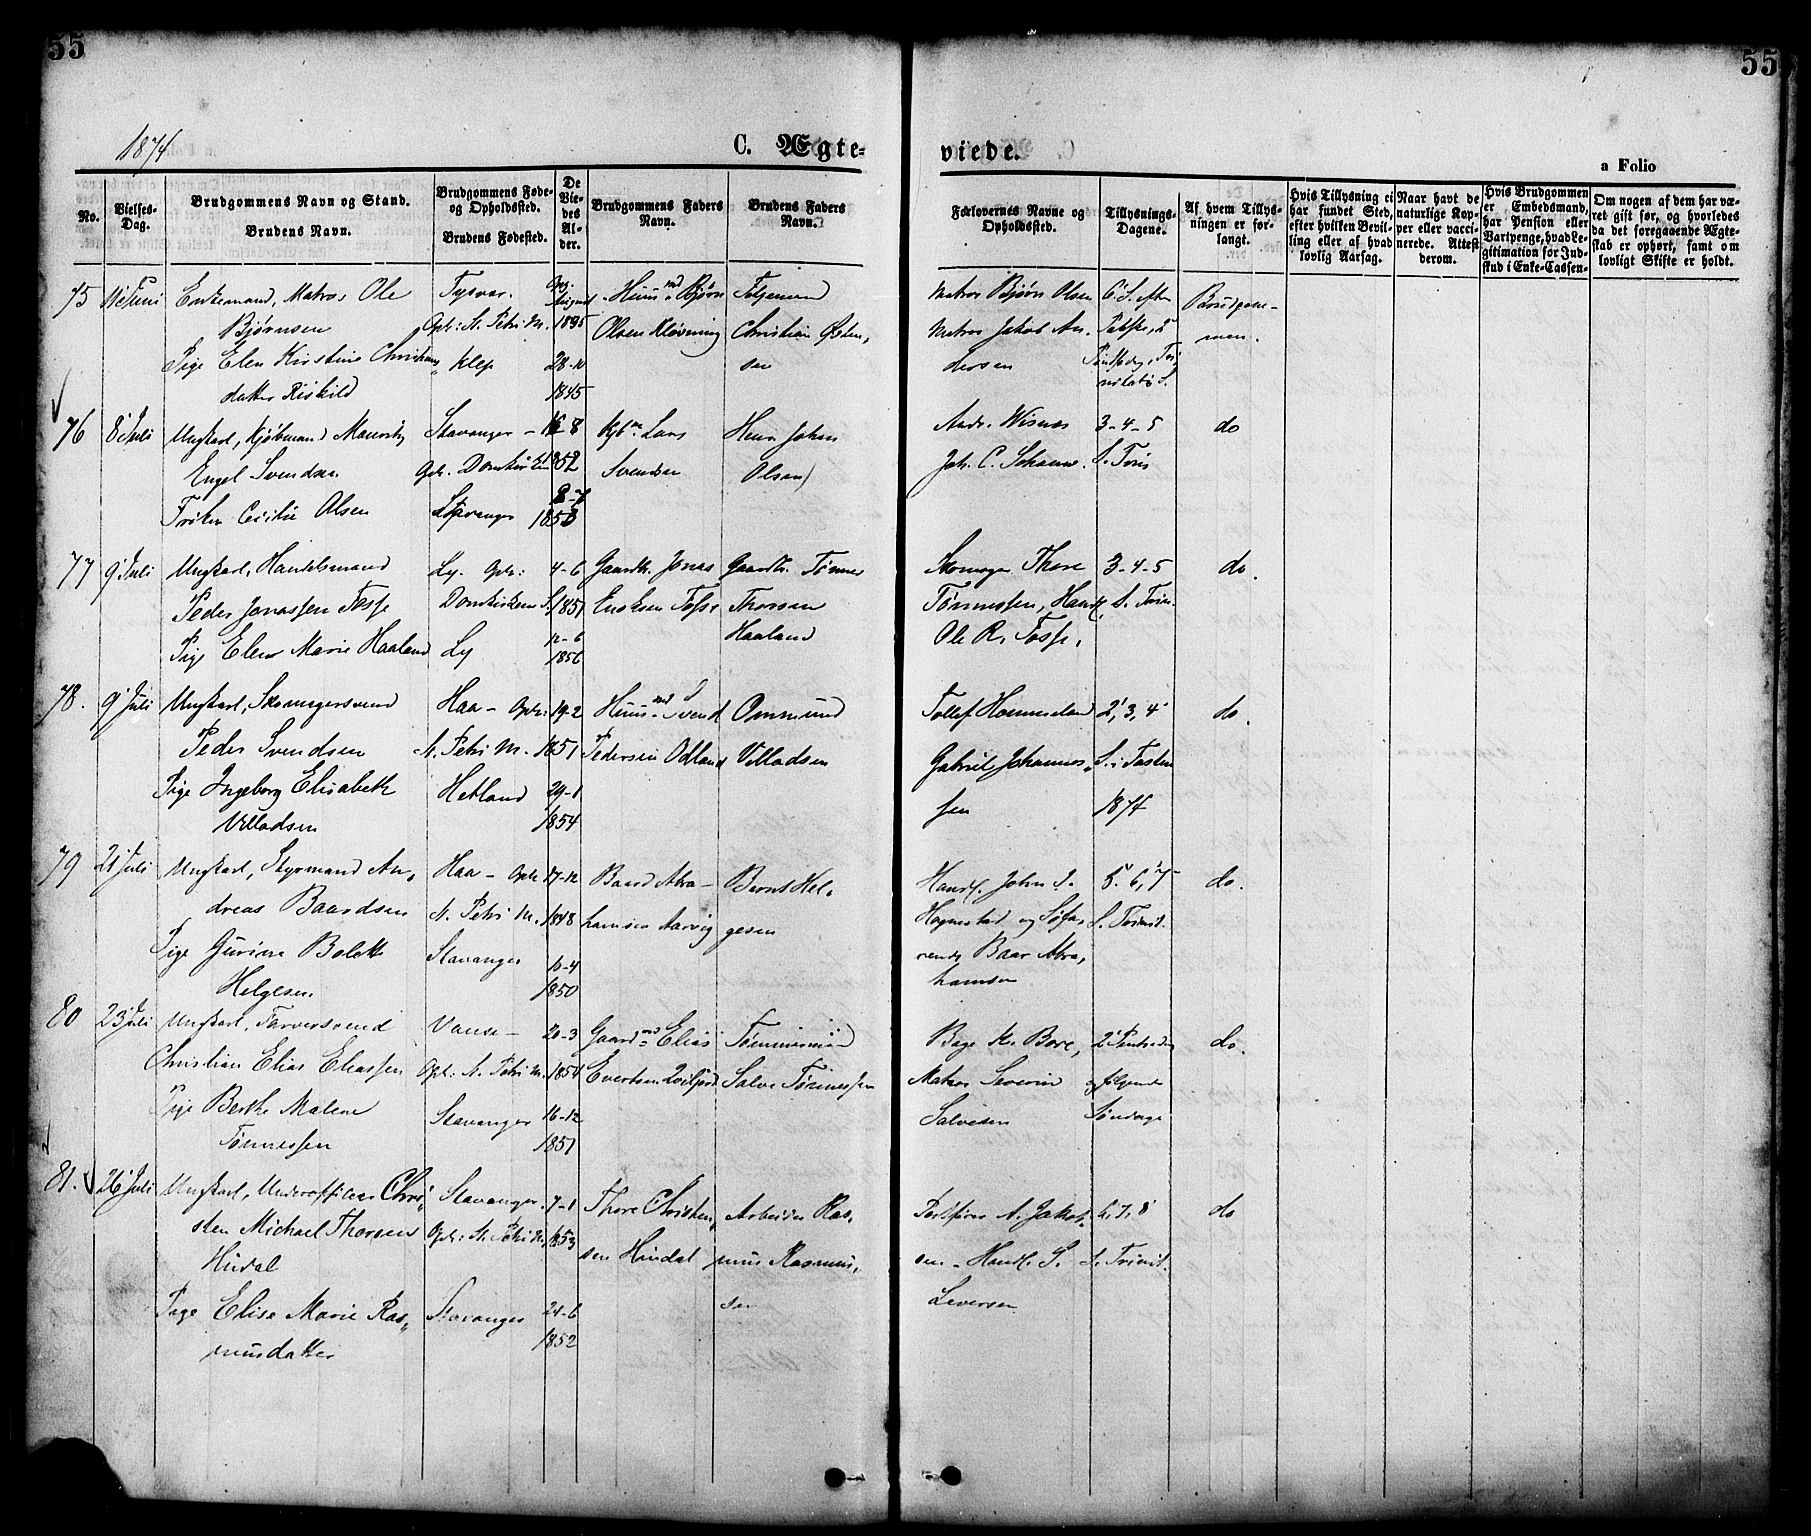 55
55
1874
C. Ægte-
viede.
a Folio
No.
Vielses-
Dag.
Brudgommens Navn og Stand.
Brudens Navn.
Brudgommens Føde-
og Opholdssted.
Brudens Fødested.
De
Vie-
des
Al-
der.
Brudgommens Faders
Navn.
Brudens Faders
Navn.
Forlovernes Navne og
Opholdssted.
Tillysnings-
Dagene.
Af hvem Tillys-
ningen er for-
langt.
Hvis Tillysning ei
har fundet Sted,
efter hvilken Bevil-
ling eller af hvad
lovlig Aarsag.
Naar havt de
naturlige Kop-
per eller vacci-
nerede. Attest
derom.
Hvis Brudgommen
er Embedsmand,
har Pension eller
Vartpenge, hvad Le-
gitimation for Ind-
skud i Enke-Cassen.
Om nogen af dem har væ-
ret gift før, og hvorledes
da det foregaaende Ægte-
skab er ophørt, samt om
lovligt Skifte er holdt.
75
Juni
Enkemand, Matros Ole
Bjørnsen
Pige Elen Kirstine Christians
datter Riskild
Tysvar.
Oph: St. Petri M.
Klep
August
1835
28-10
1845
Huusmd Bjørn
Olsen Kløvning
Christian Osten,
sen
Matros Bjørn Olsen
Matros Jakob An,
dersen
6 S. efter
Brudgom-
men.
76
8 Juli
Ungkarl, Kjøbmand Mauritz
Engel Svendsen
Frøken Cecilie Olsen
Stavanger -
Oph. Domkirken
Stavanger
16-8
1852
1853
Kjbm Lars
Svendsen
Herr Johan
Olsen
Andr. Wisnæs
Joh. C. Schauw.
3-4-5
S. Trin
do
77
9 Juli
Ungkarl, Handelsmand
Peder Jonassen Fosse
Pige Elen Marie Haaland
Ly. Oph:
Domkirkens S.
Ly
4-6
1851
12-6
1856
Gaardb. Jonas
Eriksen Fosse
Gaardbr. Tønnes
Thorsen
Haaland
Skomager Thore
Tønnessen, Handl.
Ole R. Fosse,
3-4-5
S. Trin.
do.
78.
9 Juli
Ungkarl, Skomagersvend
Peder Svendsen
Pige Ingeborg Elisabeth
Villadsen
Haa - Oph:
St. Petri M.
Hetland
19-2
1851
29-1
1854
Huusmd Svend
Pedersen Odland
Ommund
Villadsen
Tollef Hommeland
Gabriel Johannes,
sen
2, 3, 4
S. i Fasten
1874
do.
79
21 Juli
Ungkarl, Styrmand An,
dreas Baardsen
Pige Gurine Bolette
Helgesen.
Haa - Oph.
St. Petri M.
Stavanger
17-12
1848
10-4
1850
Baard Abra-
hamsen Aarvig
Bernt Hel,
gesen
Handl. John J.
Hognestad og Søfa,
rende Baar Abra,
hamsen
5. 6, 7
S. Trinit.
do.
80
23 Juli
Ungkarl, Farversvend
Christian Elias Eliassen
Pige Berthe Malene
Tønnessen
Vanse -
Oph: St. Petri M.
Stavanger
20-3
1854
16-12
1851
Gaardmd Elias
Evertsen
Tømmermd
Salve Tønnessen
Bage Kr. Bore,
Matros Severin
Salvesen
2 Pintsedag
og følgende
Søndage
do.
81.
26 Juli
Ungkarl, Underofficer Chri,
sten Michael Thorsen
Hindal
Pige Elise Marie Ras,
musdatter
Stavanger.
Oph: St. Petri M.
Stavanger
7-1
1853
24-6
1852
Thore Christen,
sen Hindal
Arbeider Ras,
mus Rasmus,
sen
A. Jakob,
sen - Handl. S.
Seversen
6, 7, 8
S. Trinit.
do